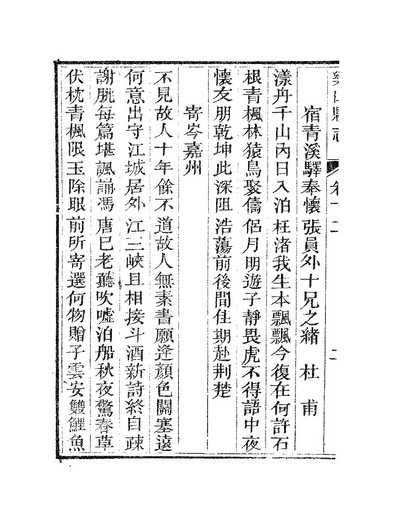 縣志 卷十二
宿青溪驛奉懷張員外十兄之緒 杜甫
漾舟千山內日入泊枉渚我生本飄飄今復在何許石
根青楓林猿鳥聚儔侶月明遊子靜畏虎不得語中夜
懷友朋乾坤此深阻浩蕩前後間佳期赴荆楚
寄岑嘉州
不見故人十年餘不道故人無素書願逢顏色關塞遠
何意出守江城居外江三峽且相接斗酒新詩終自疎
謝脁每篇堪諷誦馮唐已老聽吹噓泊船秋夜驚春草
伏枕青楓限玉除眼前所寄選何物贈子雲安雙鯉魚